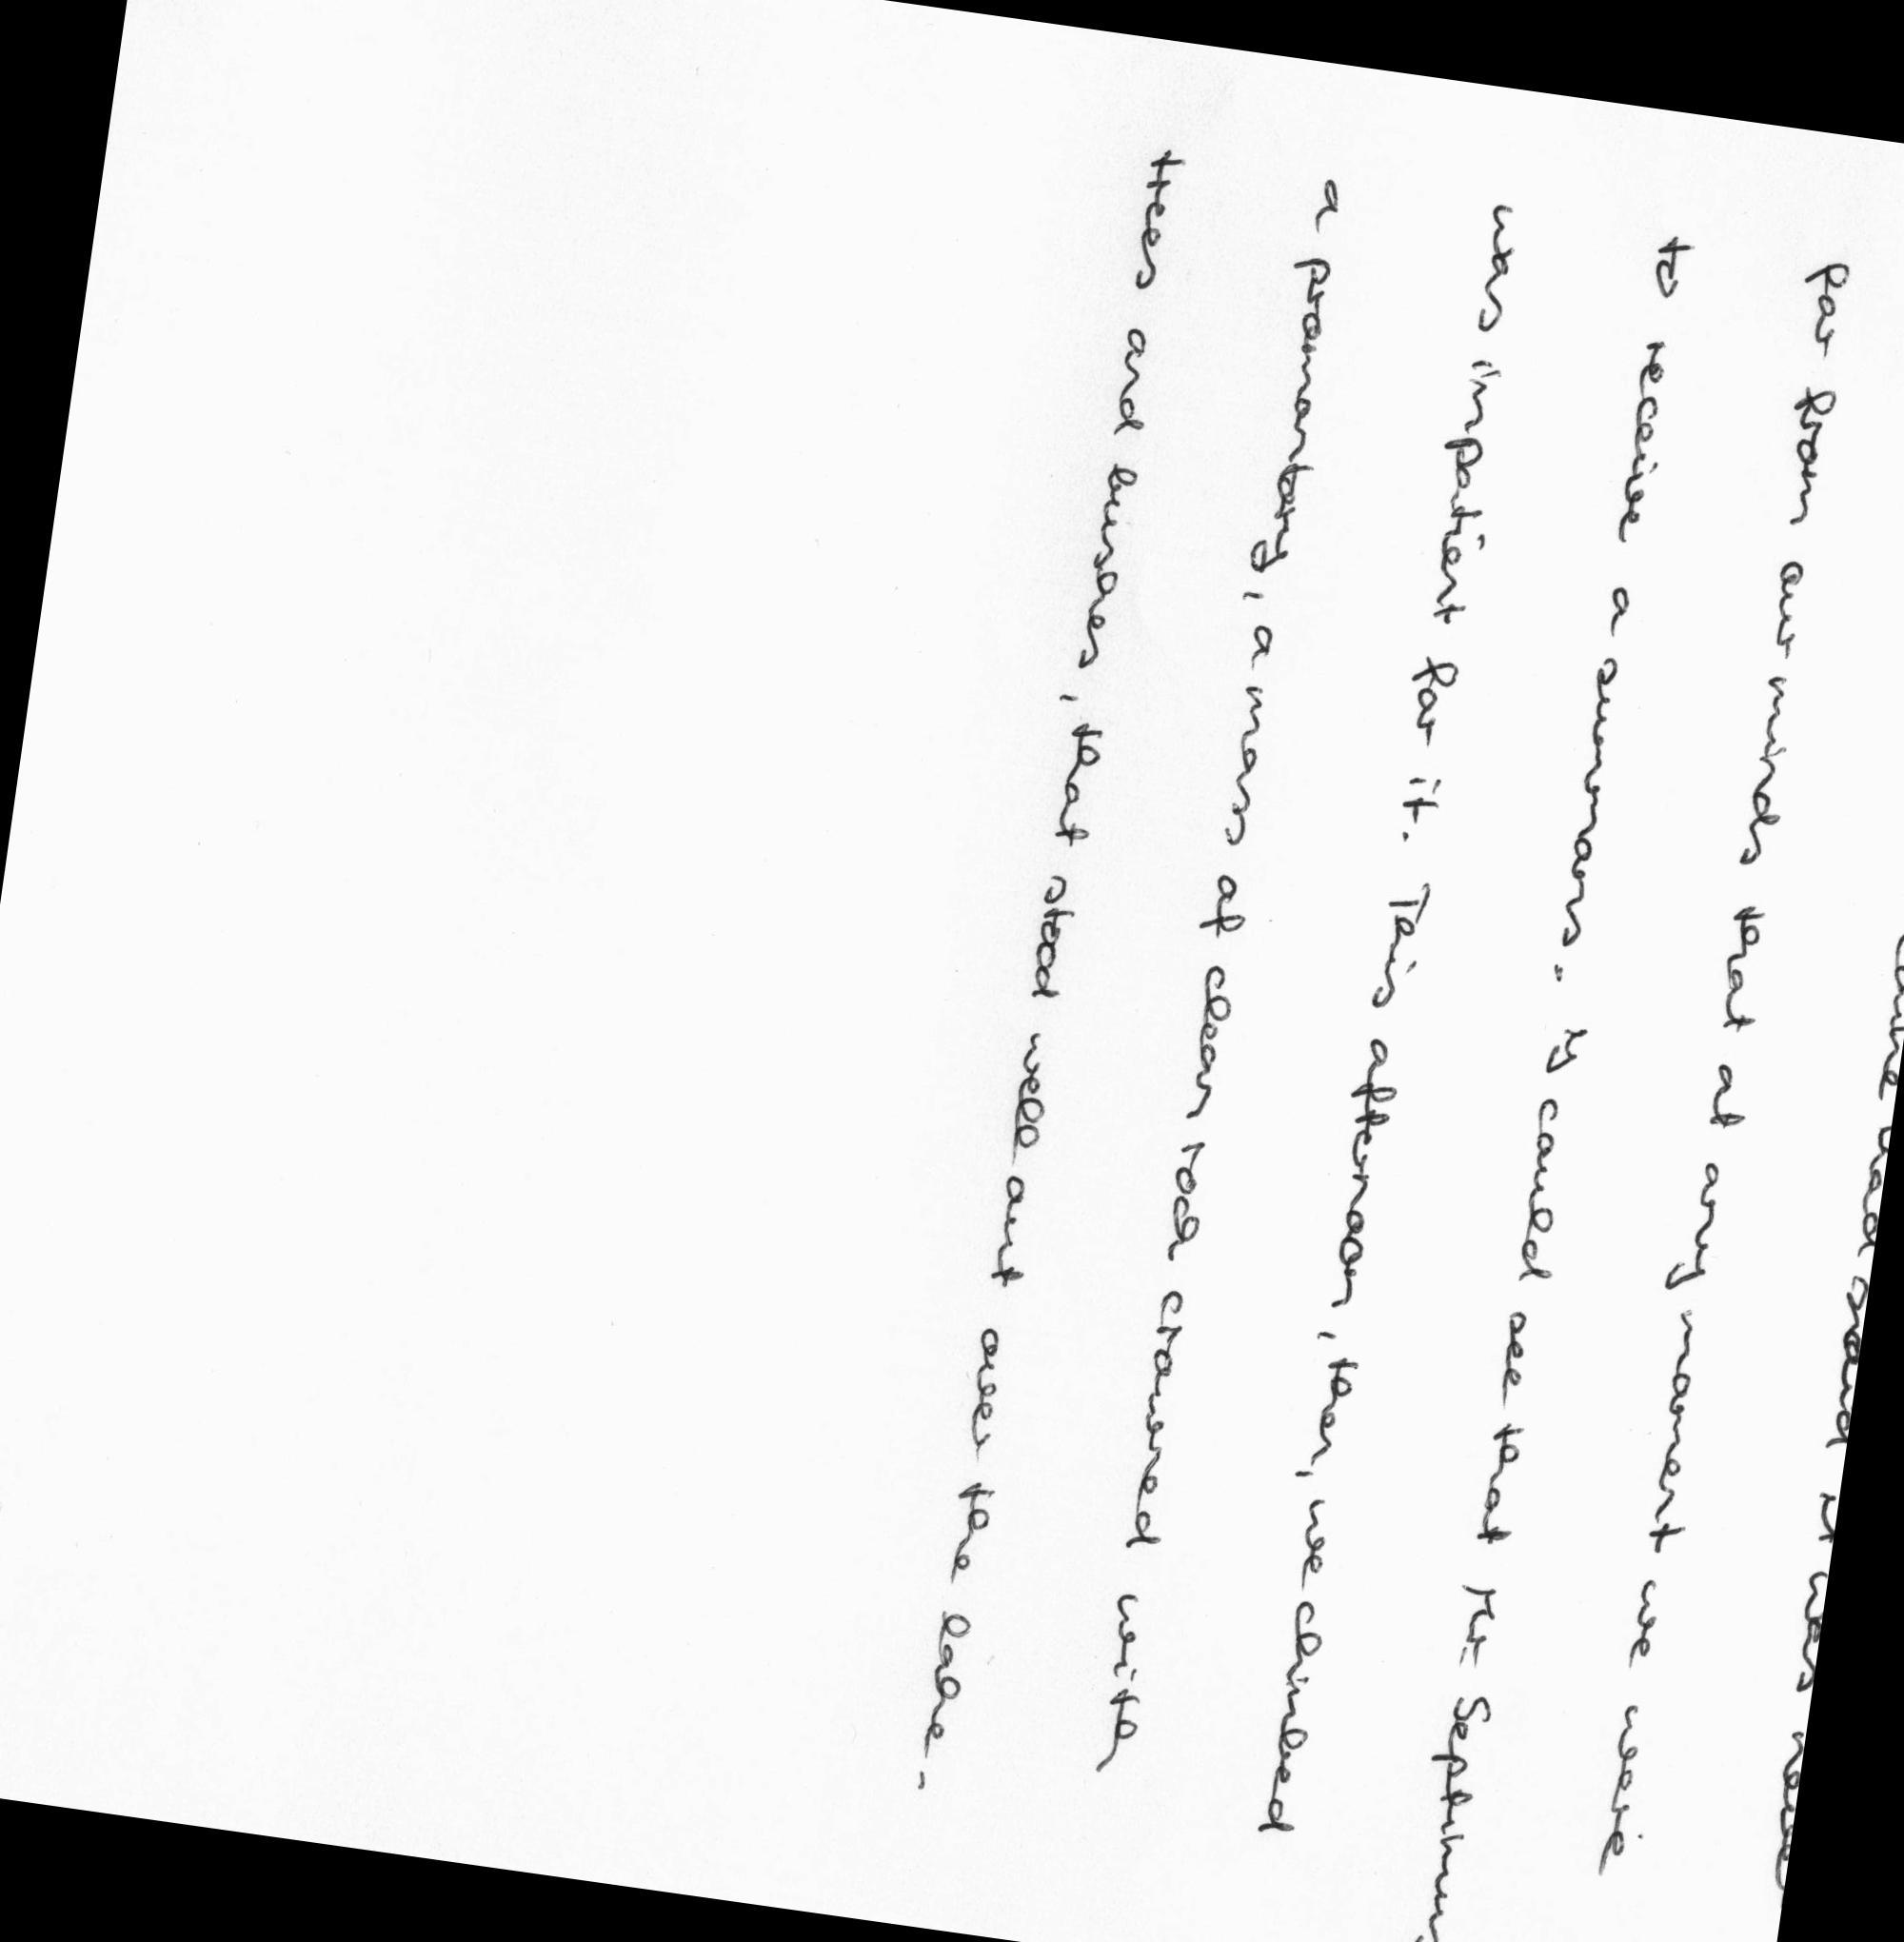 was
far from our minds that at any moment we were
to receive a summons. I could see that Mr Septimu
was impatient for it. This afternoon, then, we climbed
a promontory, a mass of clean rock crowned with
trees and bushes, that stood well out over the lake.